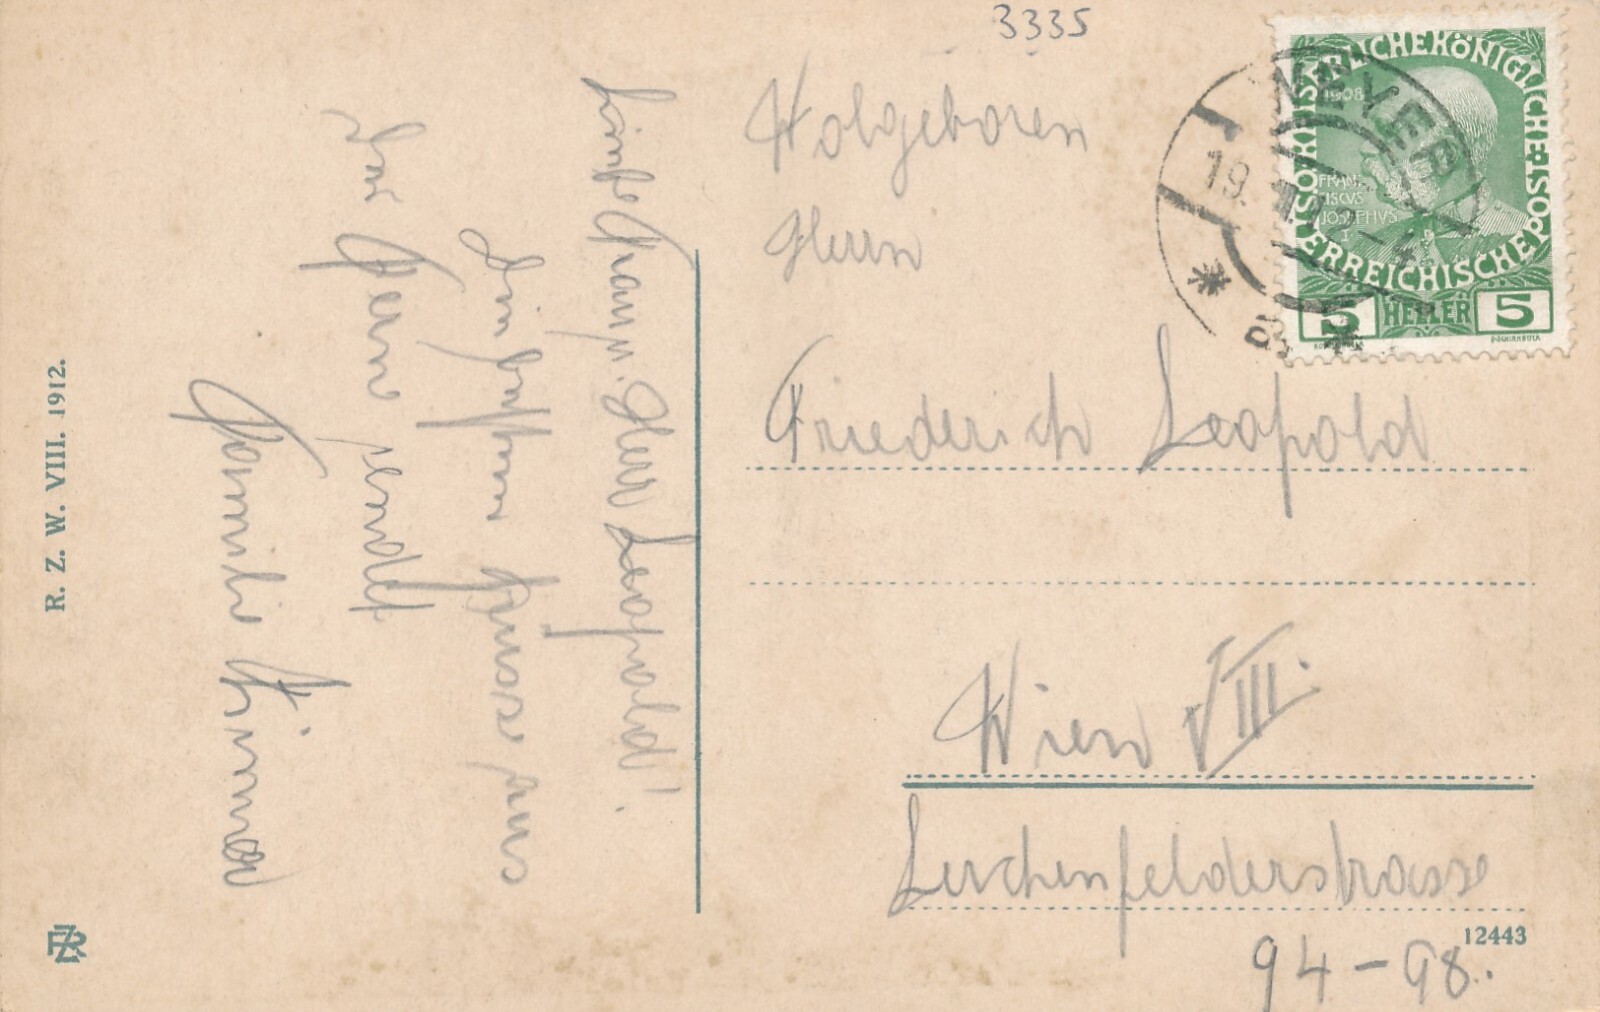 3335
KAISERLICHE KÖNIGLICHE ÖSTERREICHISCHE POST
1908
FRANCISCUS JOSEPHUS I
5 HELLER 5
19.
Wolgeboren
Herrn
Friederich Leopold
Wien VIII.
Lerchenfelderstrasse
94-98.
12443
Herr Leopold!
Die besten Grüsse aus
der Ferne sendet
Familie
R. Z. W. VIII. 1912.
RZ